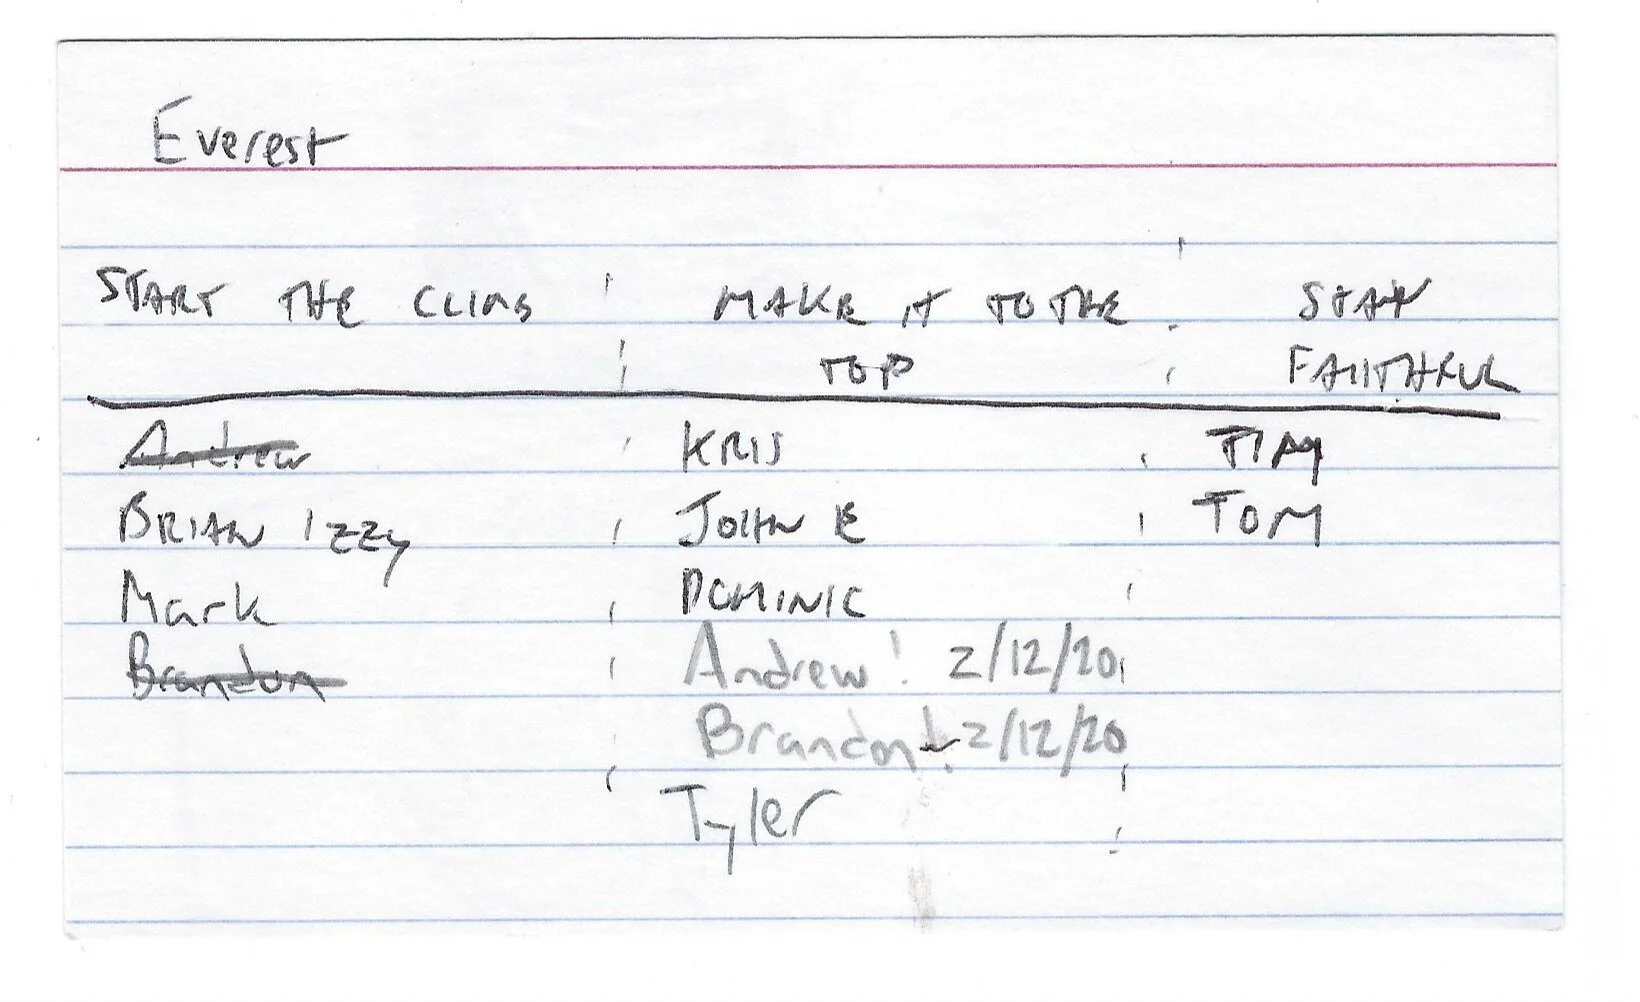 Everest
START THE CLIMB MAKE IT TO THE STAY
TOP FAITHFUL
Andrew KRIS TIM
BRIAN IZZY JOHN E TOM
Mark DOMINIC
Brandon Andrew! 2/12/20
Brandon! 2/12/20
Tyler